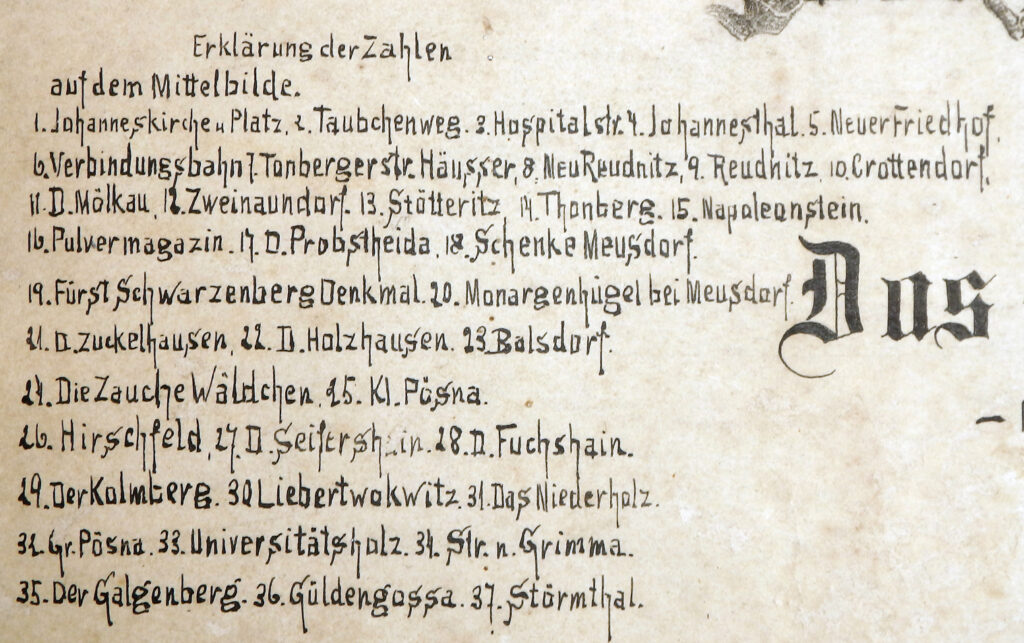 Erklärung der Zahlen
auf dem Mittelbilde.
1. Johanneskirche u Platz. 2. Taubchenweg. 3. Hospitalstr. 4. Johannesthal. 5. Neuer Friedhof.
6. Verbindungsbahn 7. Tonbergerstr. Häusser, 8. Neu Reudnitz, 9. Reudnitz, 10. Crottendorf.
11. D. Mölkau, 12. Zweinaundorf. 13. Stötteritz, 14. Thonberg. 15. Napoleonstein.
16. Pulvermagazin. 17. D. Probstheida. 18. Schenke Meusdorf.
19. Fürst Schwarzenberg Denkmal. 20. Monargenhügel bei Meusdorf.
Das
21. D. Zuckelhausen, 22. D. Holzhausen. 23. Balsdorf.
24. Die Zauche Wäldchen. 25. Kl. Pösna.
26. Hirschfeld, 27. D. Seifershain. 28. D. Fuchshain.
29. Der Kolmberg. 30 Liebertwokwitz. 31. Das Niederholz.
32. Gr. Pösna. 33. Universitätsholz. 34. Str. n. Grimma.
35. Der Galgenberg. 36. Güldengossa. 37. Störmthal.